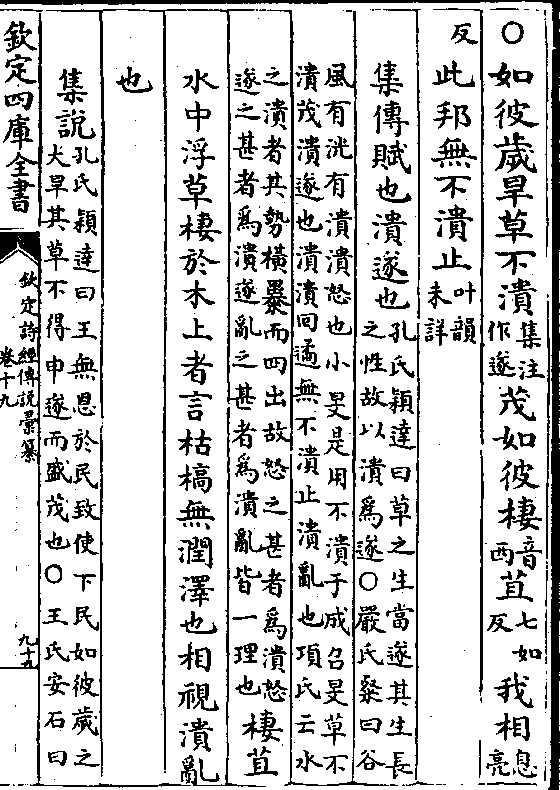 ○如彼歲旱草不潰集注作遂茂如彼棲音西苴七如反我相息亮
反此邦無不潰止叶韻未詳
集傳賦也潰遂也孔氏穎達曰草之生當遂其生長
之性故以潰爲遂○嚴氏粲曰谷
風有洸有潰潰怒也小旻是用不潰于成召旻草不
潰茂潰遂也潰潰回遹無不潰止潰亂也項氏云水
之潰者其勢橫暴而四出故怒之甚者爲潰怒
遂之甚者爲潰遂亂之甚者爲潰亂皆一理也棲苴
水中浮草棲於木上者言枯槁無潤澤也相視潰亂
也
集說孔氏穎達曰王無恩於民致使下民如彼歲之
大旱其草不得申遂而盛茂也○王氏安石曰
欽定四庫全書
欽定詩經傳說彙纂
卷十九
九十五